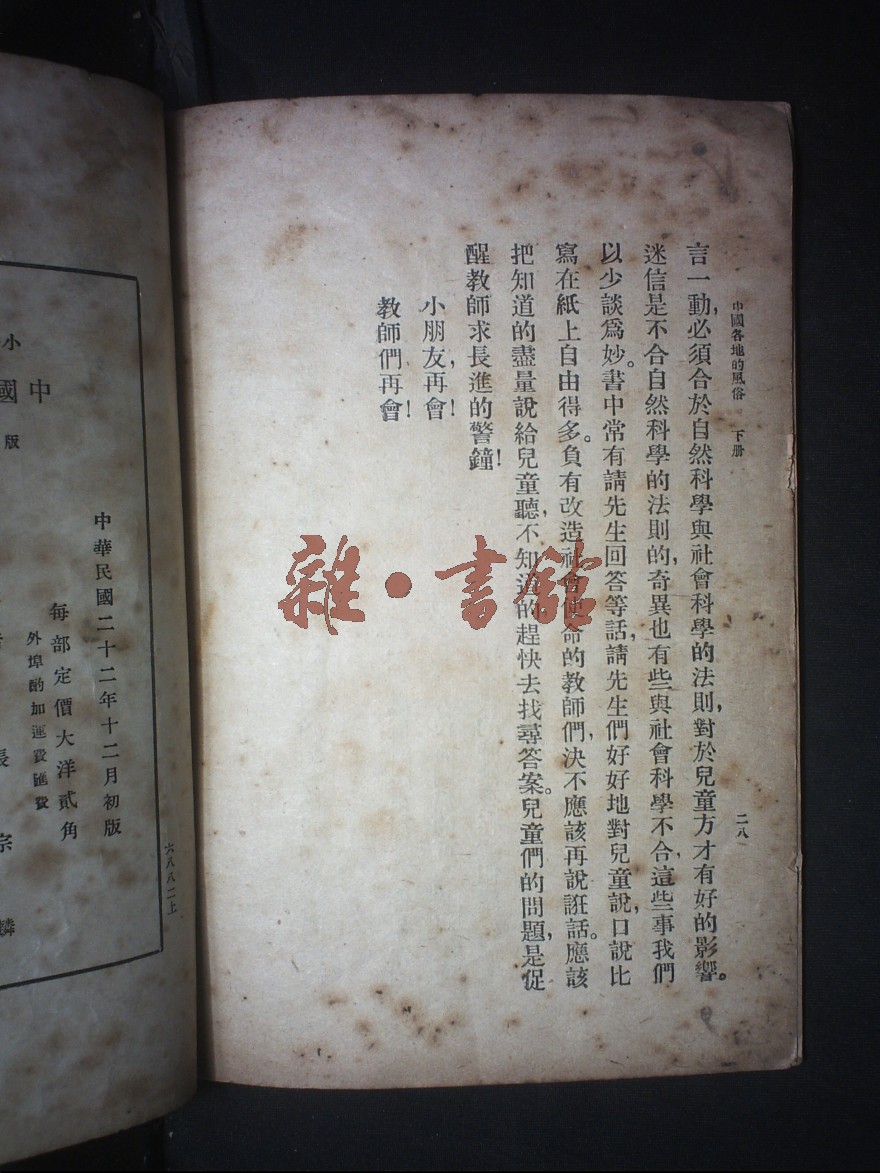 中國各地的風俗　下册
二八
言一動，必須合於自然科學與社會科學的法則，對於兒童方才有好的影響。
迷信是不合自然科學的法則的，奇異也有些與社會科學不合，這些事我們
以少談爲妙。書中常有請先生回答等話，請先生們好好地對兒童說，口說比
寫在紙上自由得多。負有改造社會使命的教師們，決不應該再說誑話。應該
把知道的盡量說給兒童聽，不知道的，趕快去找尋答案。兒童們的問題，是促
醒教師求長進的警鐘！
小朋友，再會！
教師們再會！
雜·書館
六八八二上
中華民國二十二年十二月初版
每部定價大洋貳角
外埠酌加運費匯費
宗
麟
小
中
國
版